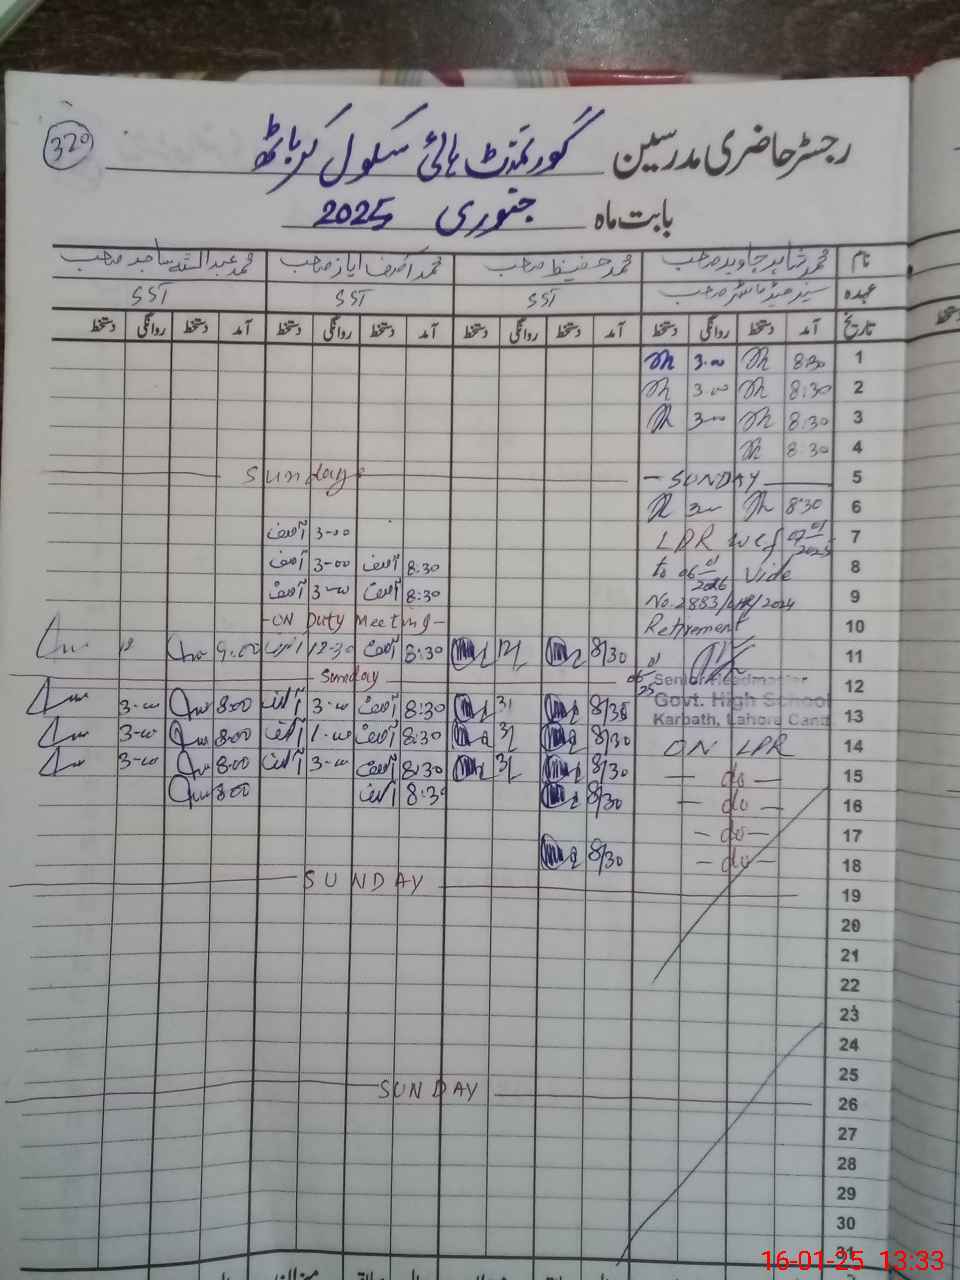 320
رجسٹر حاضری مدرسین گورنمنٹ ہائی سکول کرباٹھ
بابت ماہ جنوری 2025
نام محمد شاہد جاوید صاحب محمد حفیظ صاحب محمد آصف ایاز صاحب محمد عبداللہ ساجد صاحب
عہدہ سینئر ہیڈ ماسٹر صاحب SST SST SST
تاریخ آمد دستخط روانگی دستخط آمد دستخط روانگی دستخط آمد دستخط روانگی دستخط آمد دستخط روانگی دستخط
1 8:30 3.00
2 8:30 3.00
3 8:30 3.00
4 8:30
5 SUNDAY Sunday
6 8:30 3.00
7 LPR wef 07/01/2025 3-00 آصف
8 to 06/01/2026 Vide 8:30 آصف 3-00 آصف
9 No. 2883/ /2024 8:30 آصف 3-00 آصف
10 Retirement -ON Duty Meeting-
11 8/30 12/ 8:30 آصف 12-30 آصف 9:00 12
12 Sunday
Senior Headmaster
Govt. High School
Karbath, Lahore Cantt
13 8/30 3/ 8:30 آصف 3-00 آصف 8:00 3-00
14 ON LPR 8/30 3/ 8:30 آصف 1-00 آصف 8:00 3-00
15 - do - 8/30 3/ 8:30 آصف 3-00 آصف 8:00 3-00
16 - do - 8/30 8:30 آصف 8:00
17 - do -
18 - do - 8/30
19 SUNDAY
20
21
22
23
24
25
26 SUNDAY
27
28
29
30
31
16-01-25 13:33